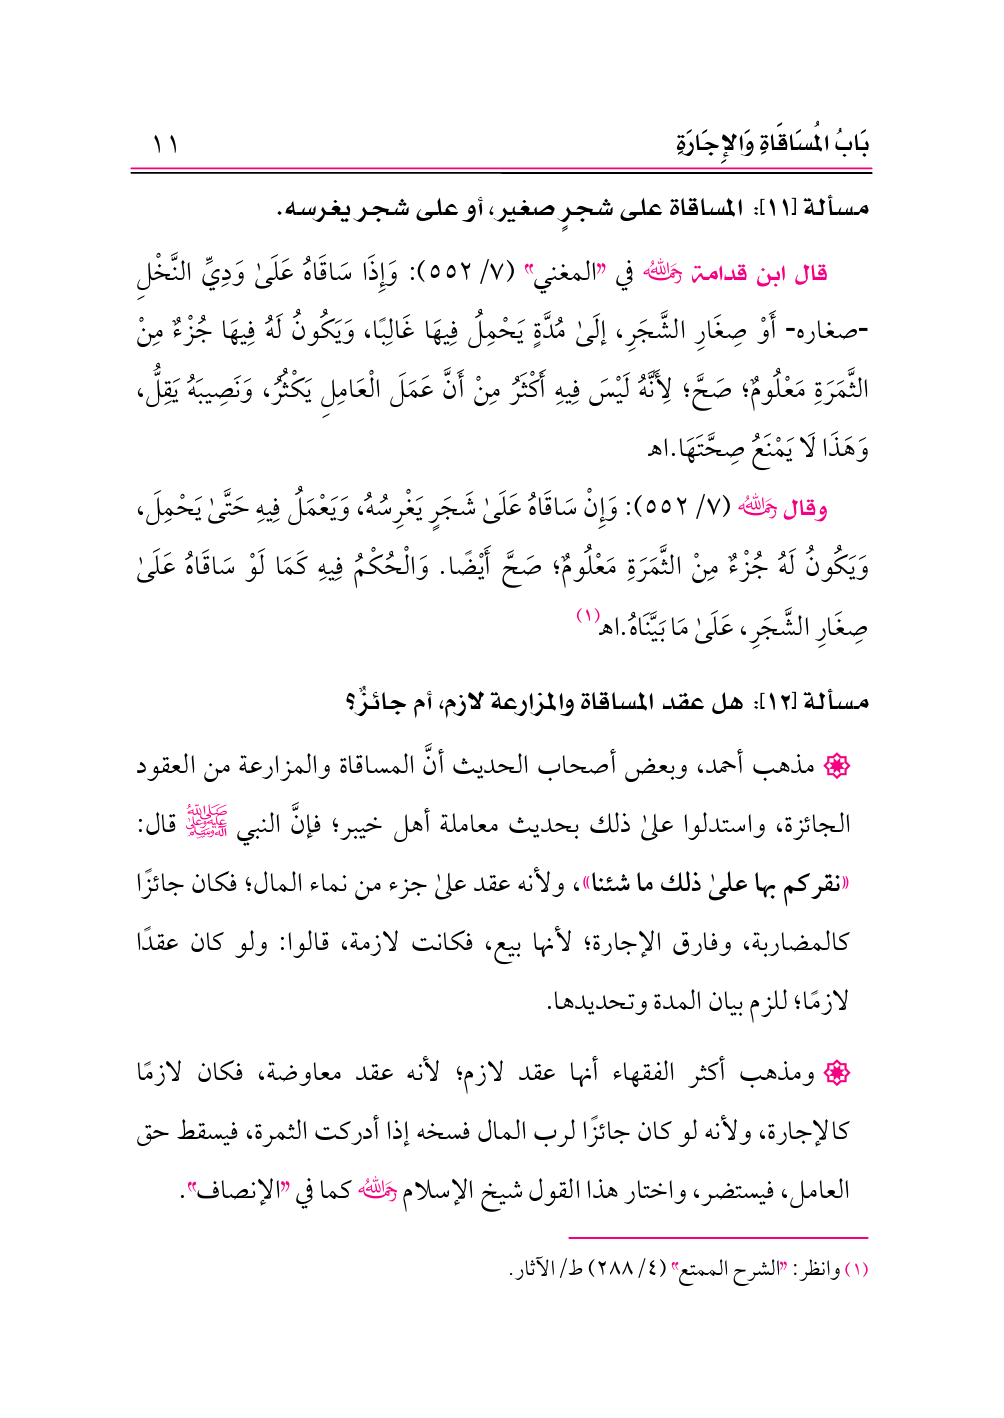 بَابُ الْمُسَاقَاةِ وَالإِجَارَةِ ١١
مسألة [١١]: المساقاة على شجرٍ صغير، أو على شجر يغرسه.
قال ابن قدامة رَحِمَهُ اللهُ في "المغني" (٧/ ٥٥٢): وَإِذَا سَاقَاهُ عَلَىٰ وَدِيِّ النَّخْلِ
-صغاره- أَوْ صِغَارِ الشَّجَرِ، إلَىٰ مُدَّةٍ يَحْمِلُ فِيهَا غَالِبًا، وَيَكُونُ لَهُ فِيهَا جُزْءٌ مِنْ
الثَّمَرَةِ مَعْلُومٌ؛ صَحَّ؛ لِأَنَّهُ لَيْسَ فِيهِ أَكْثَرُ مِنْ أَنَّ عَمَلَ الْعَامِلِ يَكْثُرُ، وَنَصِيبَهُ يَقِلُّ،
وَهَذَا لَا يَمْنَعُ صِحَّتَهَا.اهـ
وقال رَحِمَهُ اللهُ (٧/ ٥٥٢): وَإِنْ سَاقَاهُ عَلَىٰ شَجَرٍ يَغْرِسُهُ، وَيَعْمَلُ فِيهِ حَتَّىٰ يَحْمِلَ،
وَيَكُونُ لَهُ جُزْءٌ مِنْ الثَّمَرَةِ مَعْلُومٌ؛ صَحَّ أَيْضًا. وَالْحُكْمُ فِيهِ كَمَا لَوْ سَاقَاهُ عَلَىٰ
صِغَارِ الشَّجَرِ، عَلَىٰ مَا بَيَّنَّاهُ.اهـ(١)
مسألة [١٢]: هل عقد المساقاة والمزارعة لازم، أم جائزٌ؟
مذهب أحمد، وبعض أصحاب الحديث أنَّ المساقاة والمزارعة من العقود
الجائزة، واستدلوا علىٰ ذلك بحديث معاملة أهل خيبر؛ فإنَّ النبي ﷺ قال:
«نقركم بها علىٰ ذلك ما شئنا»، ولأنه عقد علىٰ جزء من نماء المال؛ فكان جائزًا
كالمضاربة، وفارق الإجارة؛ لأنها بيع، فكانت لازمة، قالوا: ولو كان عقدًا
لازمًا؛ للزم بيان المدة وتحديدها.
ومذهب أكثر الفقهاء أنها عقد لازم؛ لأنه عقد معاوضة، فكان لازمًا
كالإجارة، ولأنه لو كان جائزًا لرب المال فسخه إذا أدركت الثمرة، فيسقط حق
العامل، فيستضر، واختار هذا القول شيخ الإسلام رَحِمَهُ اللهُ كما في "الإنصاف".
(١) وانظر: "الشرح الممتع" (٤/ ٢٨٨) ط/ الآثار.